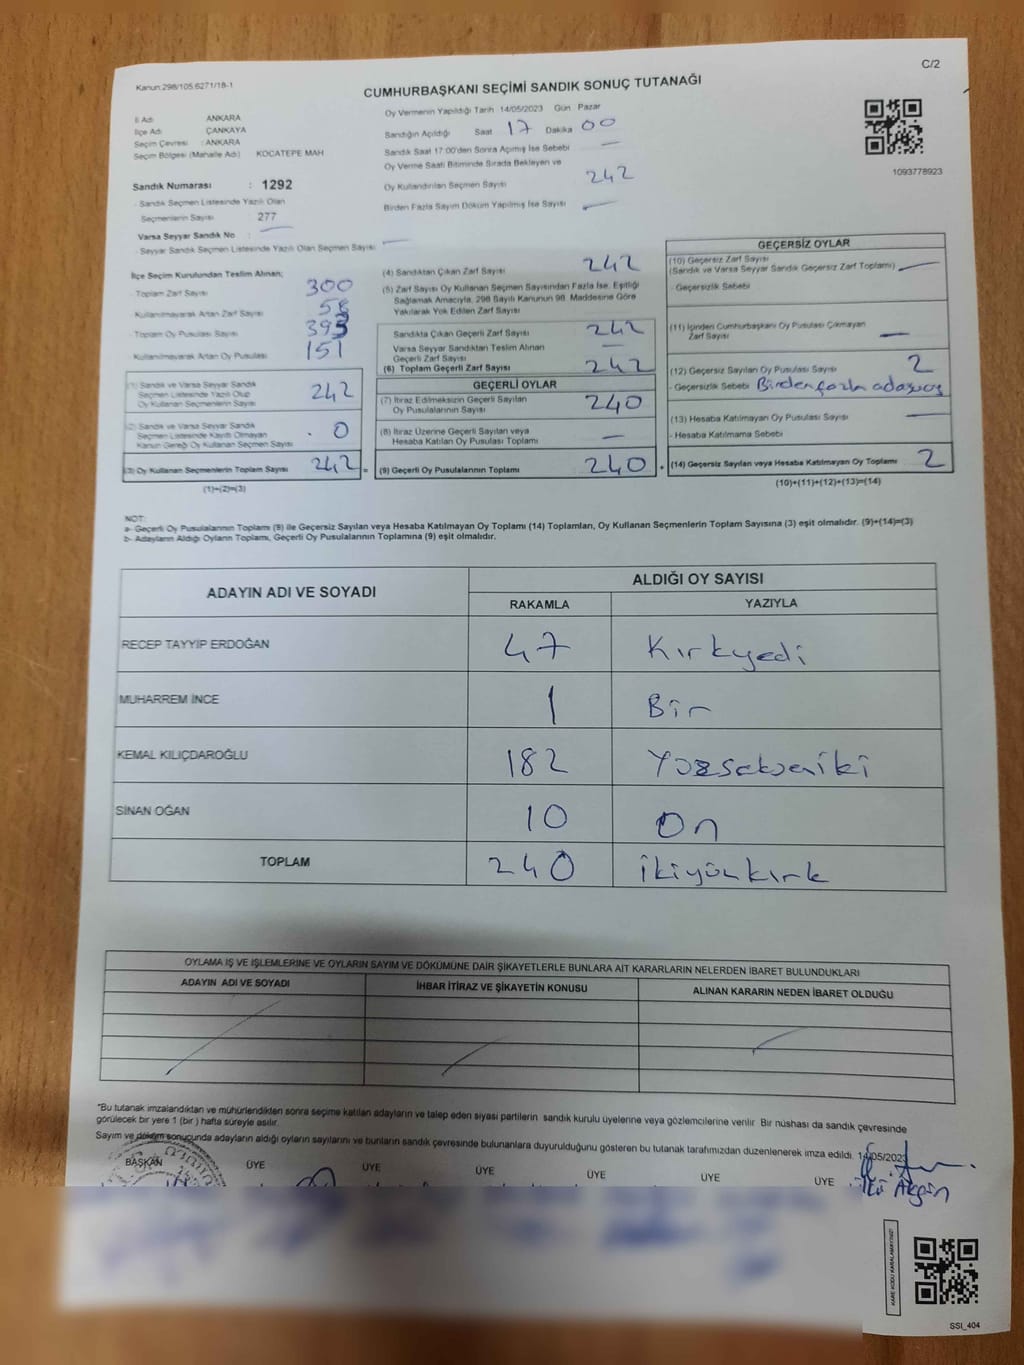 C/2
Kanun:298/105.6271/18-1
CUMHURBAŞKANI SEÇİMİ SANDIK SONUÇ TUTANAĞI
İl Adı : ANKARA
İlçe Adı : ÇANKAYA
Seçim Çevresi : ANKARA
Seçim Bölgesi (Mahalle Adı) : KOCATEPE MAH
Sandık Numarası : 1292
- Sandık Seçmen Listesinde Yazılı Olan
Seçmenlerin Sayısı : 277
Varsa Seyyar Sandık No :
- Seyyar Sandık Seçmen Listesinde Yazılı Olan Seçmen Sayısı :
Oy Vermenin Yapıldığı Tarih 14/05/2023 Gün Pazar
Sandığın Açıldığı Saat 17 Dakika 00
Sandık Saat 17:00'den Sonra Açımış İse Sebebi —
Oy Verme Saati Bitiminde Sırada Bekleyen ve
Oy Kullandırılan Seçmen Sayısı 242
Birden Fazla Sayım Döküm Yapılmış İse Sayısı —
1093778923
İlçe Seçim Kurulundan Teslim Alınan;
- Toplam Zarf Sayısı 300
- Kullanılmayarak Artan Zarf Sayısı 58
- Toplam Oy Pusulası Sayısı 393
- Kullanılmayarak Artan Oy Pusulası 151
(1) Sandık ve Varsa Seyyar Sandık
Seçmen Listesinde Yazılı Olup
Oy Kullanan Seçmenlerin Sayısı 242
(2) Sandık ve Varsa Seyyar Sandık
Seçmen Listesinde Kayıtlı Olmayan
Kanun Gereği Oy Kullanan Seçmen Sayısı 0
(3) Oy Kullanan Seçmenlerin Toplam Sayısı 242 =
(1)+(2)=(3)
(4) Sandıktan Çıkan Zarf Sayısı 242
(5) Zarf Sayısı Oy Kullanan Seçmen Sayısından Fazla İse, Eşitliği
Sağlamak Amacıyla, 298 Sayılı Kanunun 98. Maddesine Göre
Yakılarak Yok Edilen Zarf Sayısı
Sandıkta Çıkan Geçerli Zarf Sayısı 242
Varsa Seyyar Sandıktan Teslim Alınan
Geçerli Zarf Sayısı —
(6) Toplam Geçerli Zarf Sayısı 242
GEÇERLİ OYLAR
(7) İtiraz Edilmeksizin Geçerli Sayılan
Oy Pusulalarının Sayısı 240
(8) İtiraz Üzerine Geçerli Sayılan veya
Hesaba Katılan Oy Pusulası Toplamı —
(9) Geçerli Oy Pusulalarının Toplamı 240 +
GEÇERSİZ OYLAR
(10) Geçersiz Zarf Sayısı
(Sandık ve Varsa Seyyar Sandık Geçersiz Zarf Toplamı) —
- Geçersizlik Sebebi
(11) İçinden Cumhurbaşkanı Oy Pusulası Çıkmayan
Zarf Sayısı —
(12) Geçersiz Sayılan Oy Pusulası Sayısı 2
- Geçersizlik Sebebi Birden fazla adaya oy
(13) Hesaba Katılmayan Oy Pusulası Sayısı —
- Hesaba Katılmama Sebebi
(14) Geçersiz Sayılan veya Hesaba Katılmayan Oy Toplamı 2
(10)+(11)+(12)+(13)=(14)
NOT:
a- Geçerli Oy Pusulalarının Toplamı (9) ile Geçersiz Sayılan veya Hesaba Katılmayan Oy Toplamı (14) Toplamları, Oy Kullanan Seçmenlerin Toplam Sayısına (3) eşit olmalıdır. (9)+(14)=(3)
b- Adayların Aldığı Oyların Toplamı, Geçerli Oy Pusulalarının Toplamına (9) eşit olmalıdır.
ADAYIN ADI VE SOYADI
ALDIĞI OY SAYISI
RAKAMLA YAZIYLA
RECEP TAYYİP ERDOĞAN 47 Kırkyedi
MUHARREM İNCE 1 Bir
KEMAL KILIÇDAROĞLU 182 Yüzseksenİki
SİNAN OĞAN 10 On
TOPLAM 240 İkiyüzkırk
OYLAMA İŞ VE İŞLEMLERİNE VE OYLARIN SAYIM VE DÖKÜMÜNE DAİR ŞİKAYETLERLE BUNLARA AİT KARARLARIN NELERDEN İBARET BULUNDUKLARI
ADAYIN ADI VE SOYADI İHBAR İTİRAZ VE ŞİKAYETİN KONUSU ALINAN KARARIN NEDEN İBARET OLDUĞU
"Bu tutanak imzalandıktan ve mühürlendikten sonra seçime katılan adayların ve talep eden siyasi partilerin sandık kurulu üyelerine veya gözlemcilerine verilir. Bir nüshası da sandık çevresinde
görülecek bir yere 1 (bir) hafta süreyle asılır.
Sayım ve döküm sonucunda adayların aldığı oyların sayılarını ve bunların sandık çevresinde bulunanlara duyurulduğunu gösteren bu tutanak tarafımızdan düzenlenerek imza edildi. 14/05/2023
BAŞKAN ÜYE ÜYE ÜYE ÜYE ÜYE ÜYE
KARE KODU KARALAMAYINIZ!
SSI_404